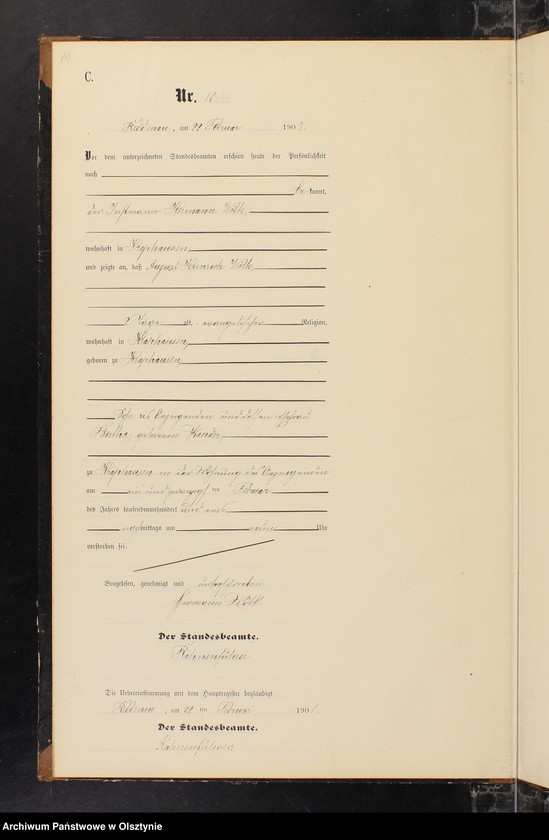 C.
Nr. 10
am 22 Februar 1901.
Vor dem unterzeichneten Standesbeamten erschien heute der Persönlichkeit
nach
be kannt,
der Instmann Hermann Wölk,
wohnhaft in
und zeigte an, daß August Heinrich Wölk,
2 Tage alt, evangelischer Religion,
wohnhaft in
geboren zu
Sohn des Anzeigenden und dessen Ehefrau
geborenen
zu in der Wohnung des Anzeigenden
am ein und zwanzigsten Februar
des Jahres tausendneunhundert und eins
nachmittags um neun Uhr
verstorben sei.
Vorgelesen, genehmigt und unterschrieben
Hermann Wölk
Der Standesbeamte.
Die Uebereinstimmung mit dem Hauptregister beglaubigt
am 22 ten Februar 1901.
Der Standesbeamte.
Archiwum Państwowe w Olsztynie